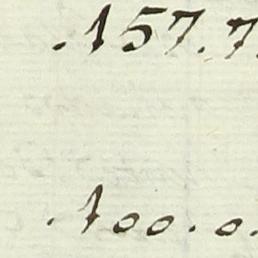 .157.7.
.100.0.